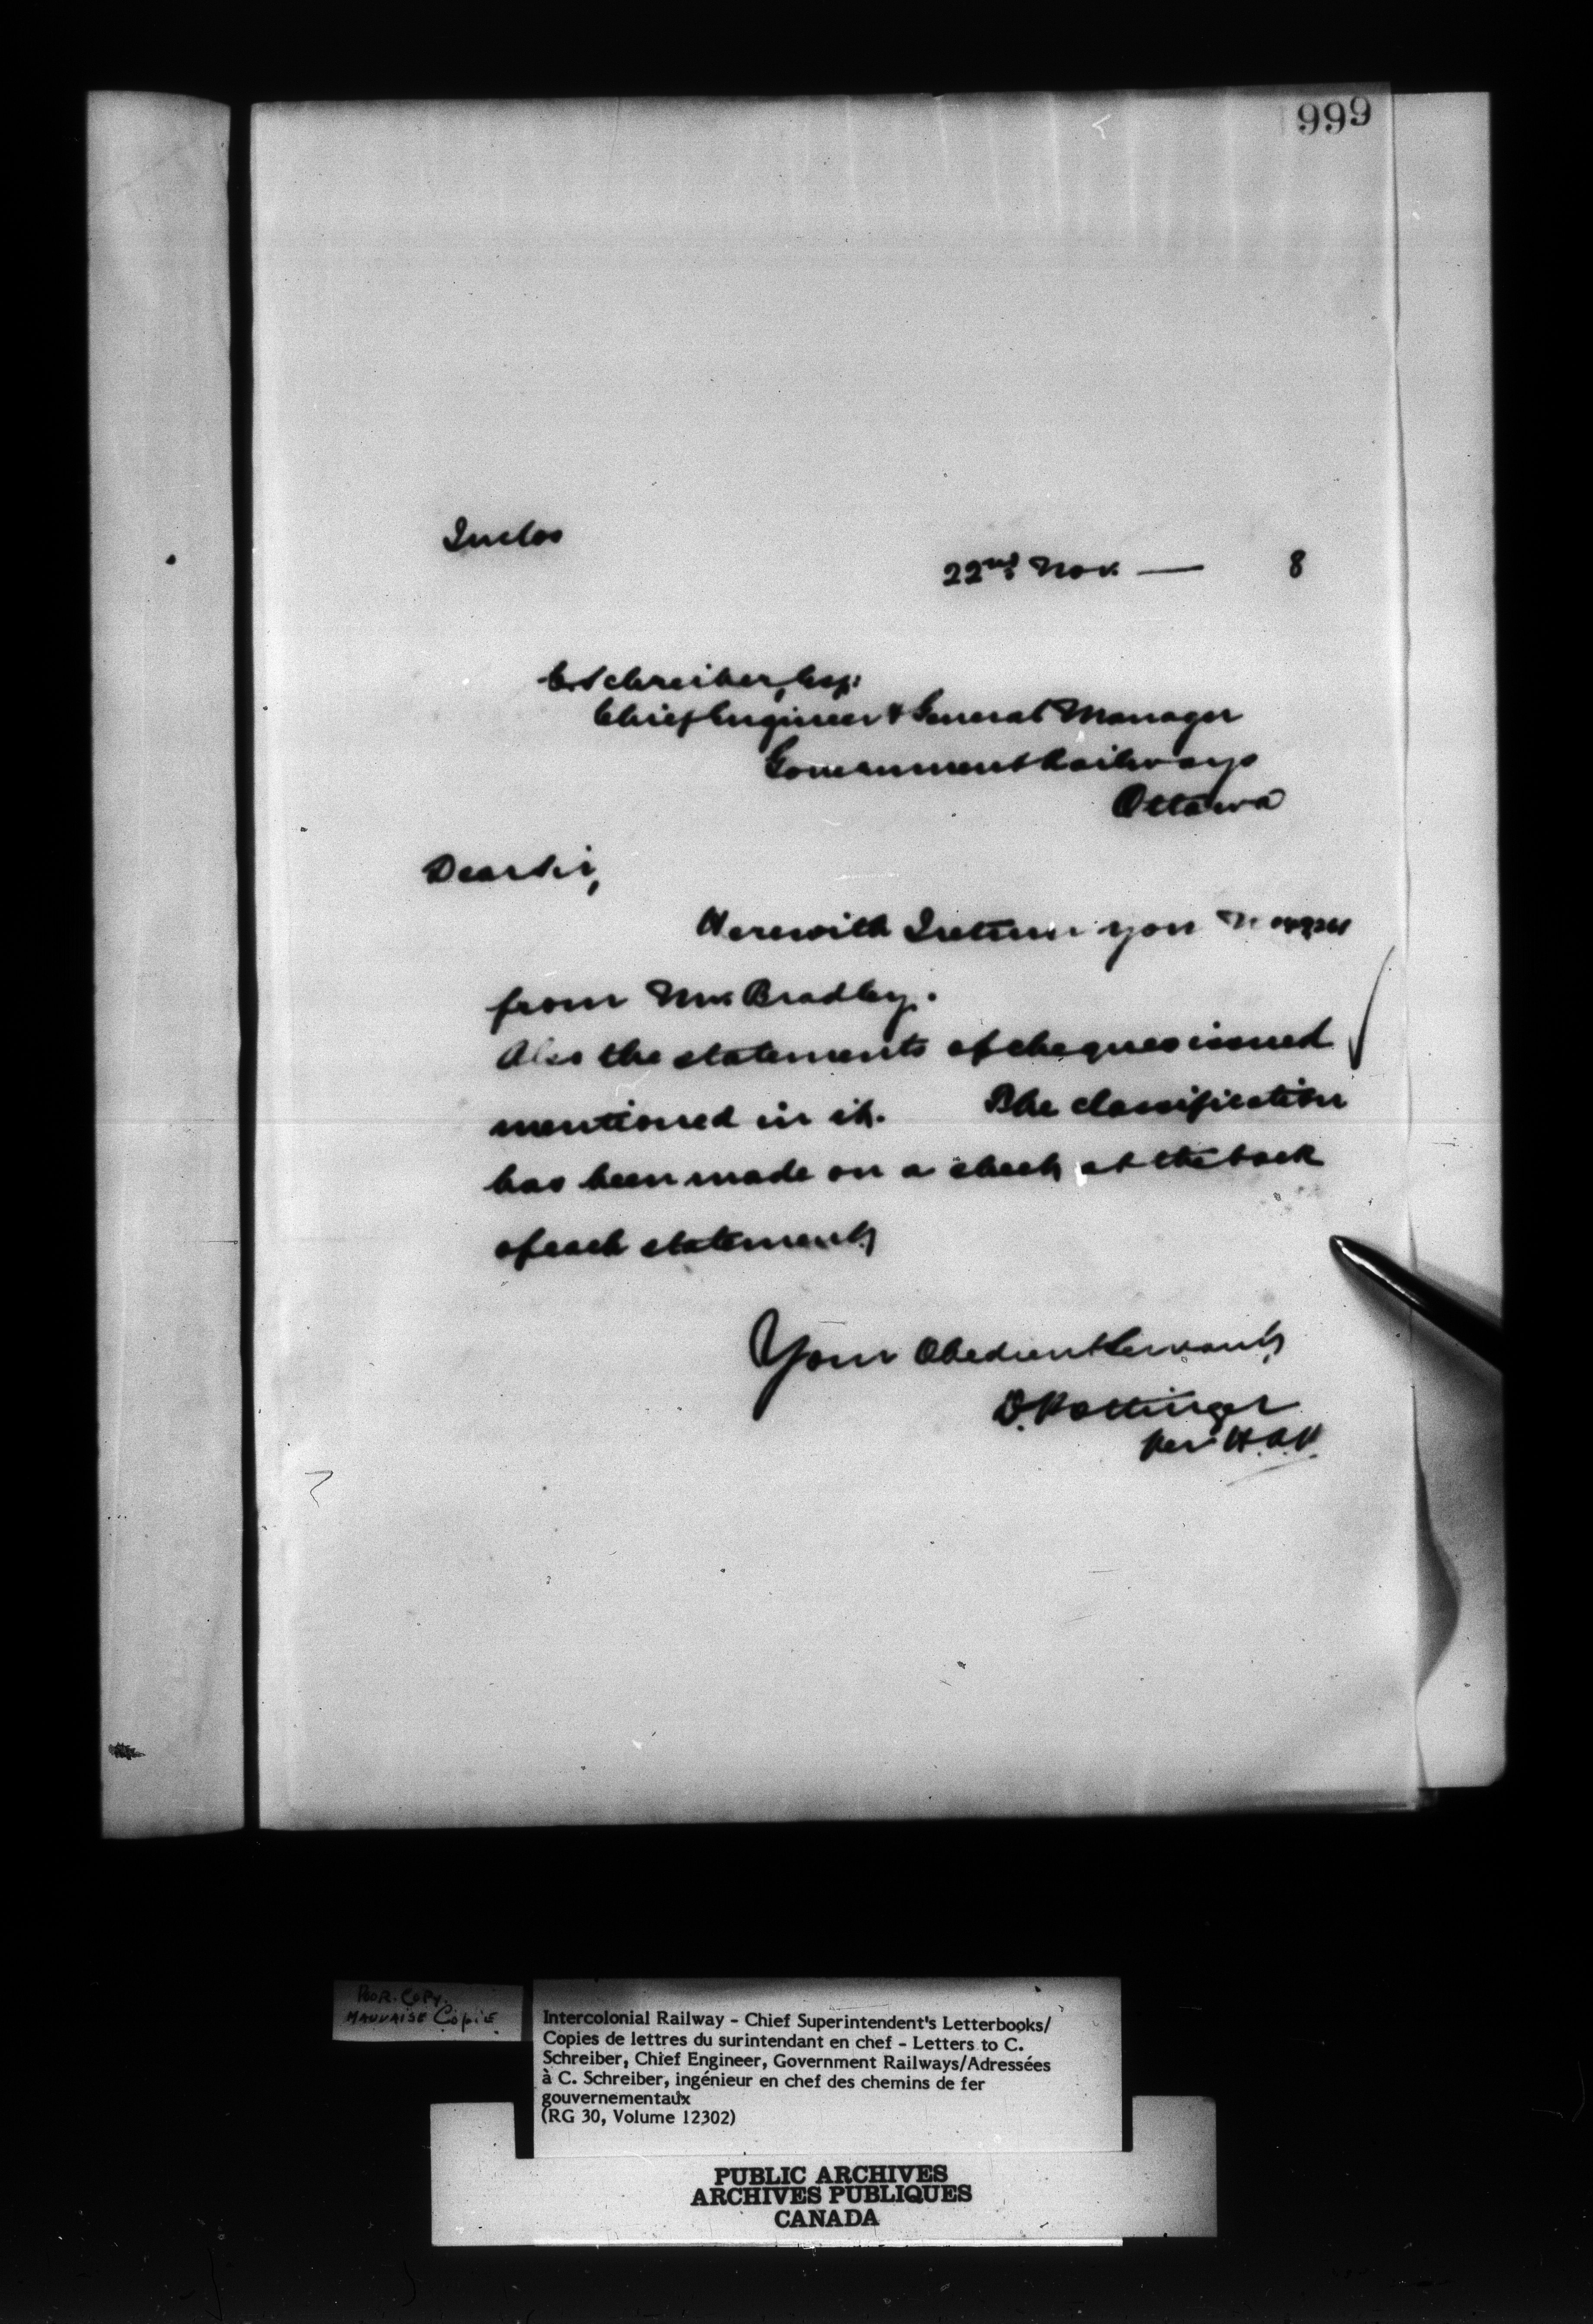 999
Inclos
22nd Nov. — 8
C. Schreiber, Esq:
Chief Engineer & General Manager
Government Railways
Ottawa
Dear Sir,
Herewith I return you
from Mr. Bradley.
Also the statements of cheques issued
mentioned in it. The classification
has been made on a sheet at the back
of each statement,
Your Obedient Servant,
D. Pottinger
per
POOR. COPY.
MAUVAISE Copie
Intercolonial Railway - Chief Superintendent's Letterbooks/
Copies de lettres du surintendant en chef - Letters to C.
Schreiber, Chief Engineer, Government Railways/Adressées
à C. Schreiber, ingénieur en chef des chemins de fer
gouvernementaux
(RG 30, Volume 12302)
PUBLIC ARCHIVES
ARCHIVES PUBLIQUES
CANADA